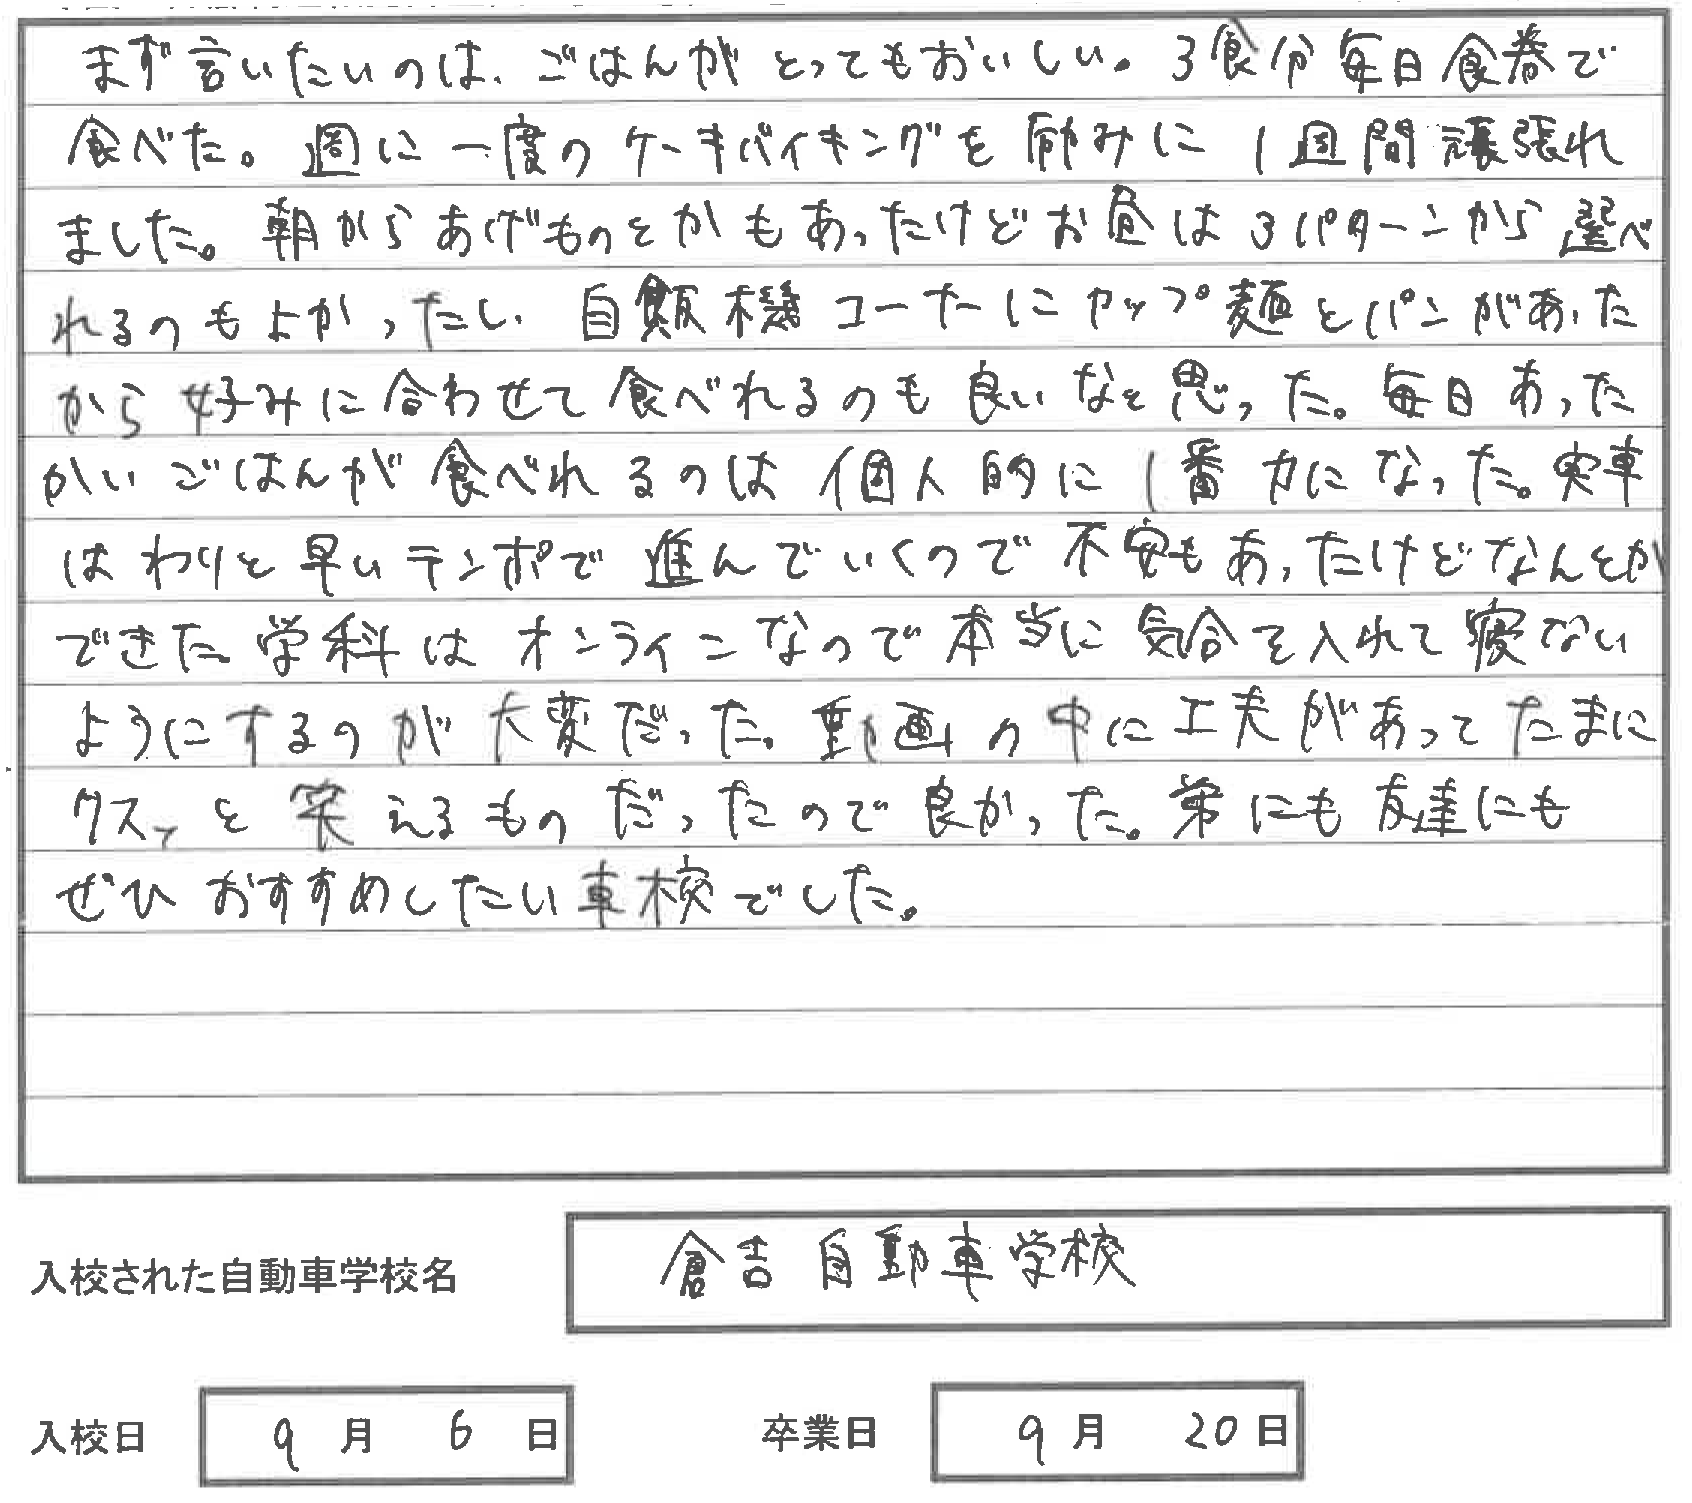 まず言いたいのは、ごはんがとってもおいしい。3食分毎日食券で
食べた。週に一度のケーキバイキングを励みに1週間頑張れ
ました。朝からあげものとかもあったけどお昼は3パターンから選べ
れるのもよかったし、自販機コーナーにカップ麺とパンがあった
から好みに合わせて食べれるのも良いなと思った。毎日あった
かいごはんが食べれるのは個人的に1番力になった。実車
はわりと早いテンポで進んでいくので不安もあったけどなんとか
できた。学科はオンラインなので本当に気合を入れて寝ない
ようにするのが大変だった。動画の中に工夫があってたまに
クスッと笑えるものだったので良かった。弟にも友達にも
ぜひおすすめしたい車校でした。
入校された自動車学校名 倉吉自動車学校
入校日 9月 6日 卒業日 9月 20日